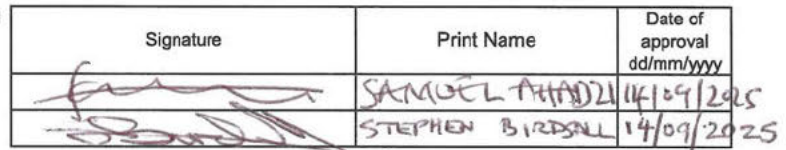 Signature Print Name Date of approval dd/mm/yyyy
SAMUEL AHADZI 14/09/2025
STEPHEN BIRDSALL 14/09/2025